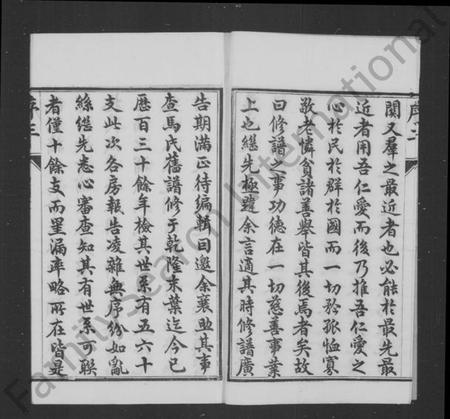 序二
關又羣之最近者也必能於最先最
近者用吾仁愛而後乃推吾仁愛之
心於民於群於國而一切矜孤恤寡
敬老憐貧諸善舉皆其後焉者矣故
曰修譜之事功德在一切慈善事業
上也繼先極韙余言適其時修譜廣
告期滿正待編輯因邀余襄助其事
查馬氏舊譜修于乾隆末葉迄今已
歷百三十餘年檢其世系有五六十
支此次各房報告凌雜無序紛如亂
絲繼先悉心審查知其有世系可聯
者僅十餘支而罣漏率略所在皆是
序三
FamilySearch International
FamilySearch International